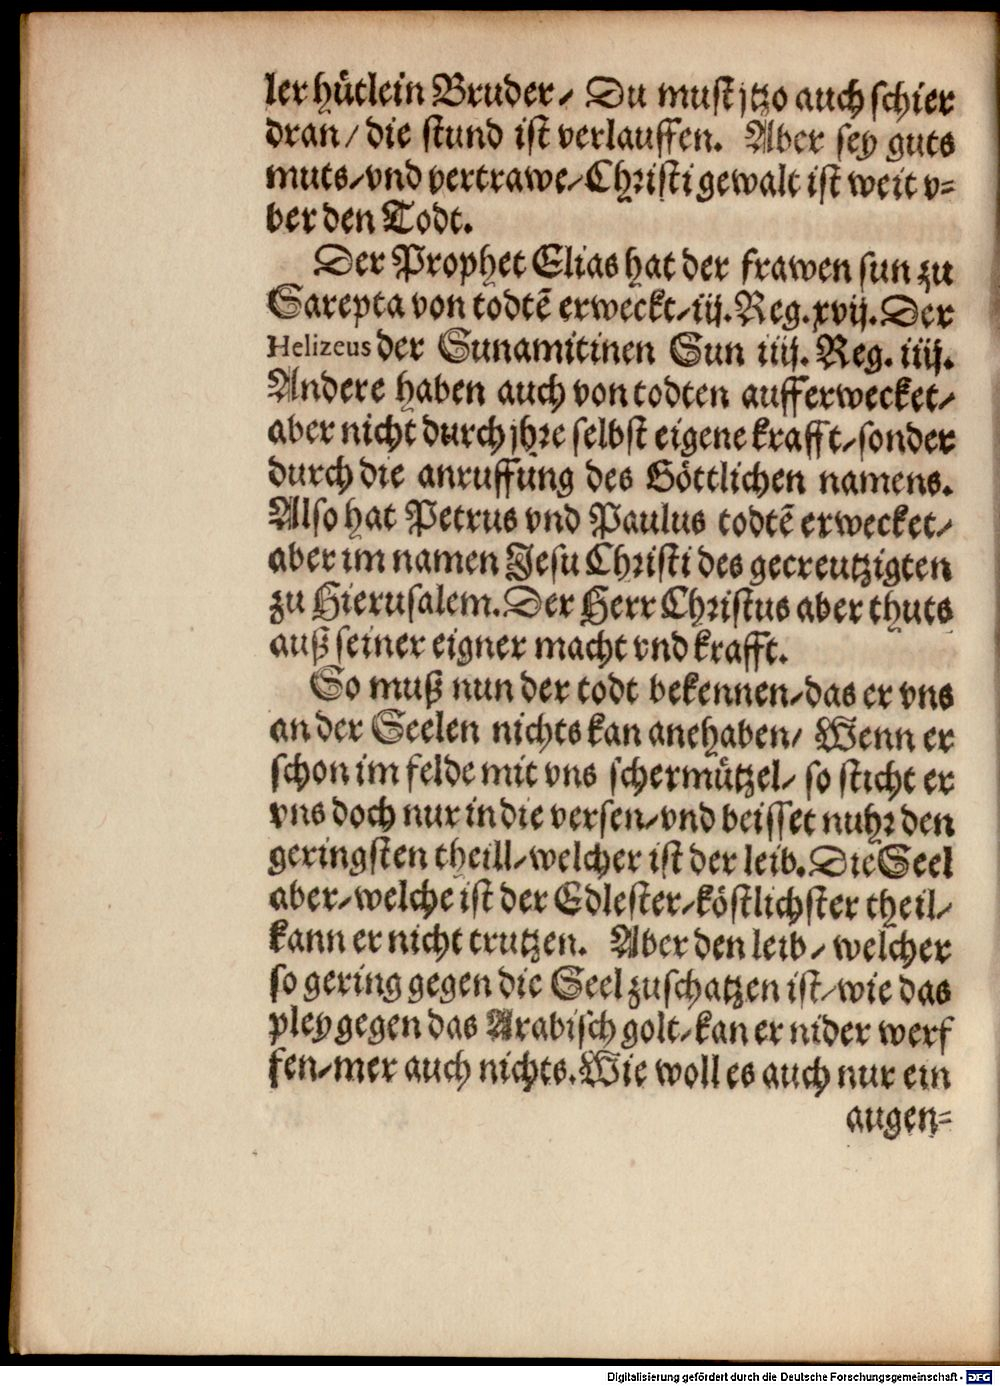 ler hütlein Bruder / Du must jtzo auch schier
dran / die stund ist verlauffen. Aber sey guts
muts / vnd vertrawe / Christi gewalt ist weit v=
ber den Todt.
Der Prophet Elias hat der frawen sun zu
Sarepta von todtē erweckt / iij. Reg. xvij. Der
Helizeus der Sunamitinen Sun iiij. Reg. iiij.
Andere haben auch von todten aufferwecket /
aber nicht durch jhre selbst eigene krafft / sonder
durch die anruffung des Göttlichen namens.
Also hat Petrus vnd Paulus todtē erwecket /
aber im namen Jesu Christi des gecreutzigten
zu Hierusalem. Der Herr Christus aber thuts
auß seiner eigner macht vnd krafft.
So muß nun der todt bekennen / das er vns
an der Seelen nichts kan anehaben / Wenn er
schon im felde mit vns schermützel / so sticht er
vns doch nur in die versen / vnd beisset nuhr den
geringsten theill / welcher ist der leib. Die Seel
aber / welche ist der Edlester / köstlichster theil /
kann er nicht trutzen. Aber den leib / welcher
so gering gegen die Seel zuschatzen ist / wie das
pley gegen das Arabisch golt / kan er nider werf
fen / mer auch nichts. Wie woll es auch nur ein
augen=
Digitalisierung gefördert durch die Deutsche Forschungsgemeinschaft - DFG